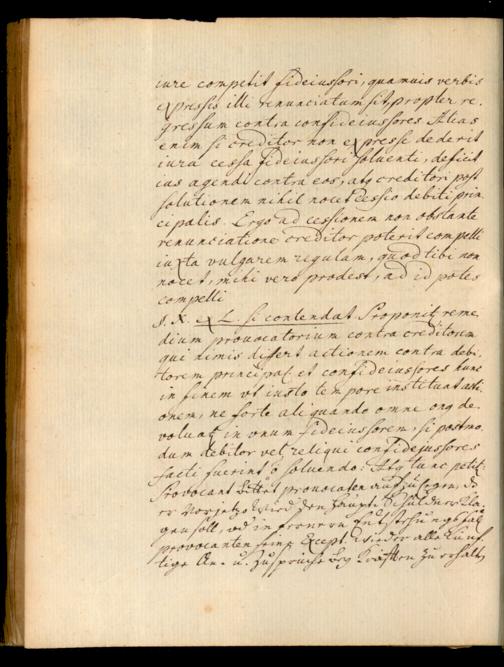 iure competit fideiussori, quamuis verbis
expressis illi renunciatum sit, propter re.
gressum contra confideiussores Alias
enim si creditor non expresse dederit
iura cessa fideiussori soluenti, deficit
ius agendi contra eos, atq creditori post
solutionem nihil nocet cessio debiti prin
cipalis. Ergo ad cessionem non obstante
renunciatione creditor poterit compelli
iuxta vulgarem regulam, quod tibi non
nocet, mihi vero prodest, ad id potes
compelli
§. X. ex L. si contendat Proponit reme
dium provocatorium contra creditorem
qui nimis differt actionem contra debi.
torem principal et confideiussores hunc
in finem vt iusto tempore instituat acti
onem, ne forte aliquando omne onq de.
voluat in vnum fideiussorem, si postmo.
dum debitor vel reliqui confidejussores
facti fuerint õ soluendo: Atq tunc petit:
Provocant bittet provocaten aufzulegen, dß
er den Haupt-Schuldner
gen soll, od in fernern
provocanten seine Except. wieder alle künf
tige An- u. Zusprüche bey Kräfften zu erhalt